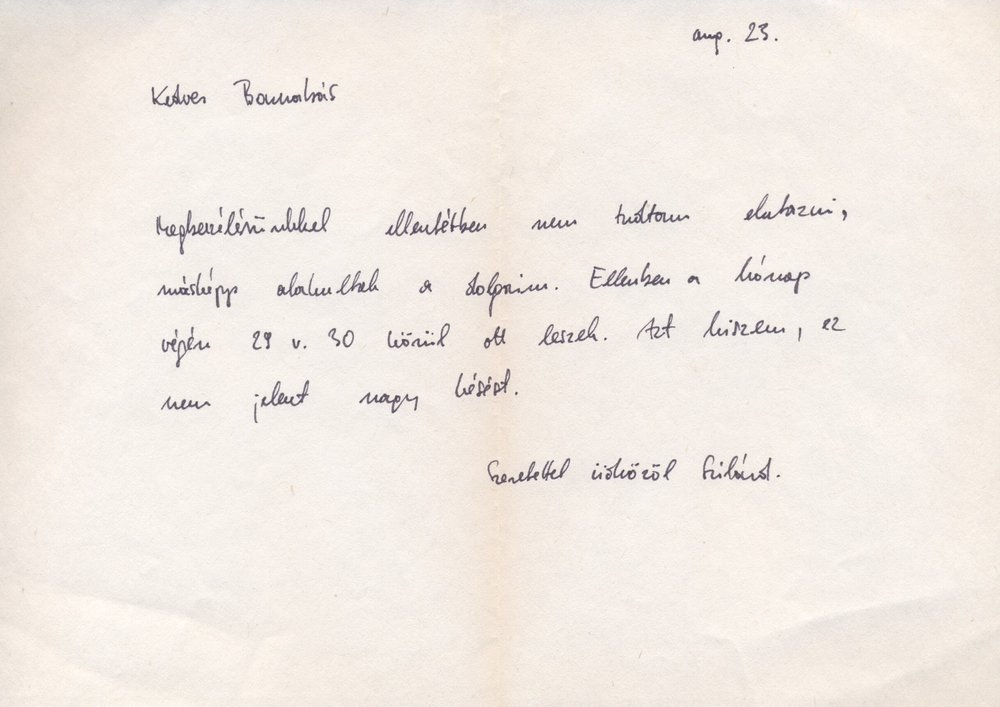 aug. 23.
Kedves Barnabás
Megbeszélésünkkel ellentétben nem tudtam elutazni,
másképp alakultak a dolgaim. Ellenben a hónap
végén 29 v. 30 körül ott leszek. Azt hiszem, ez
nem jelent nagy késést.
Szeretettel üdvözöl Szilárd.